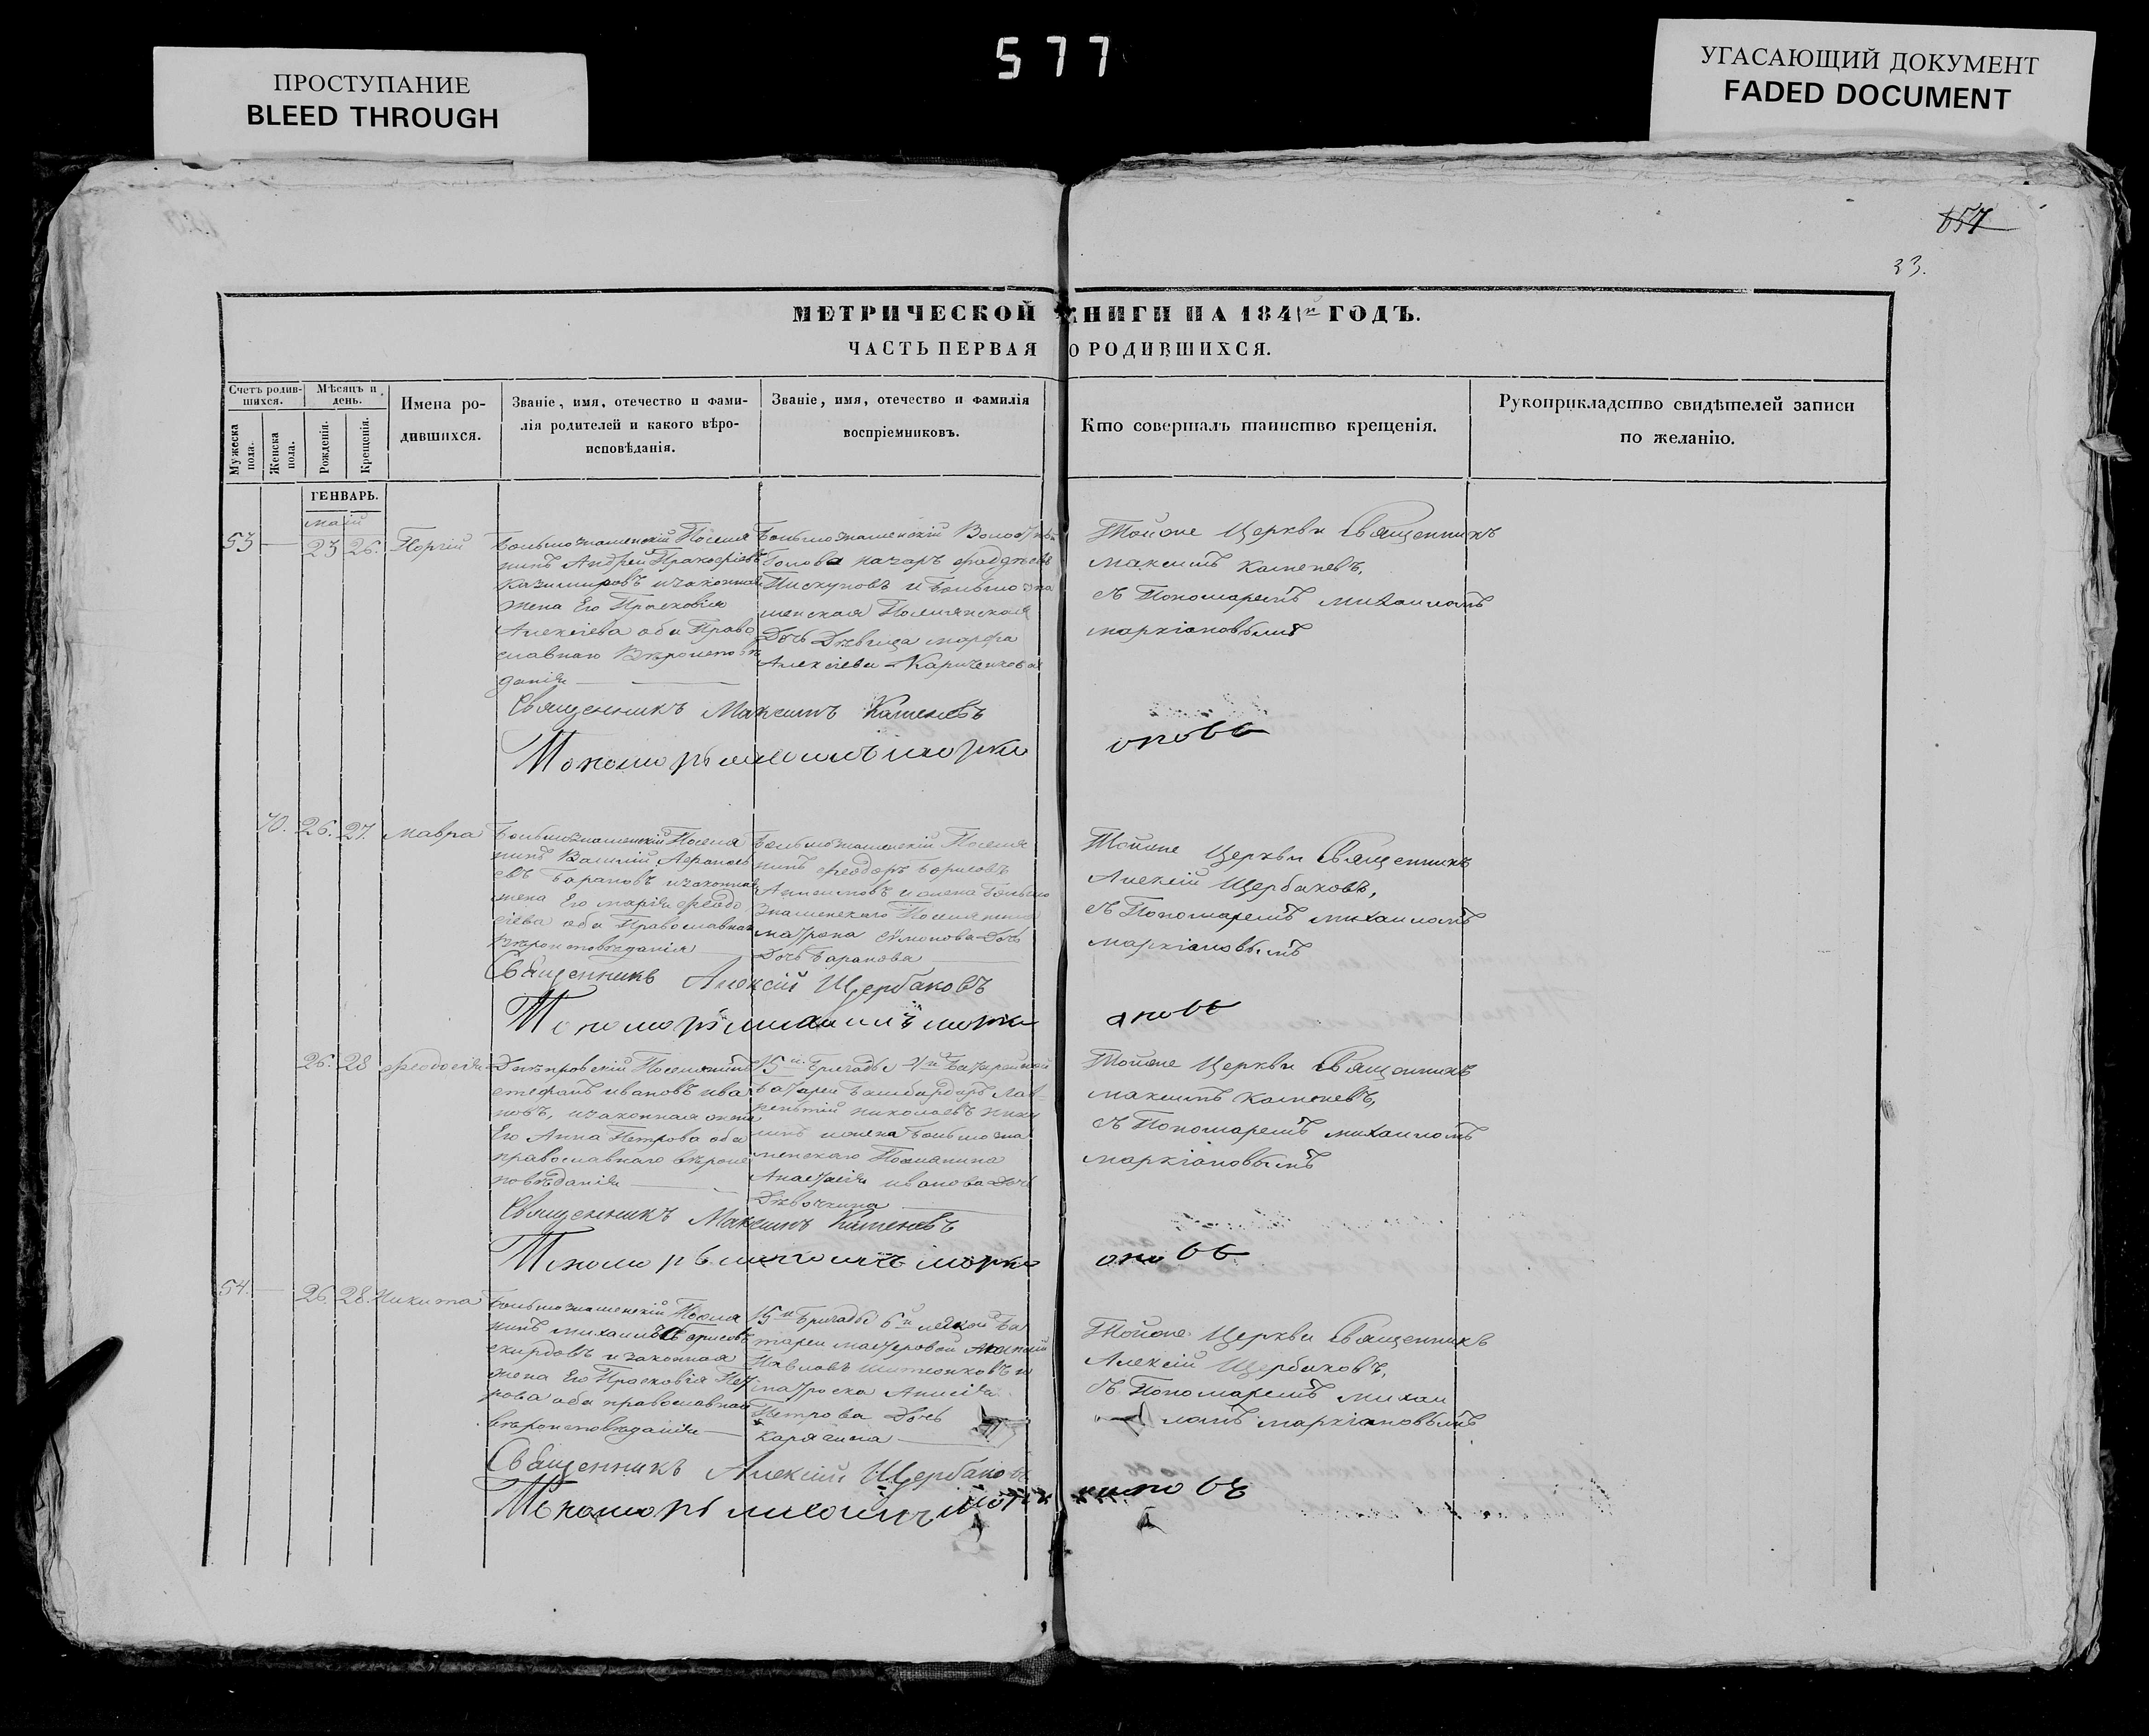 577
ПРОСТУПАНИЕ
BLEED THROUGH
УГАСАЮЩИЙ ДОКУМЕНТ
FADED DOCUMENT
657
33.
МЕТРИЧЕСКОЙ КНИГИ НА 1841й ГОДЪ.
ЧАСТЬ ПЕРВАЯ О РОДИВШИХСЯ.
Счетъ родив-
шихся.
Мужеска
пола.
Женска
пола.
Мѣсяцъ и
день.
Рожденія.
Крещенія.
Имена ро-
дившихся.
Званіе, имя, отечество и фами-
лія родителей и какого вѣро-
исповѣданія.
Званіе, имя, отечество и фамилія
воспріемниковъ.
Кто совершалъ таинство крещенія.
Рукоприкладство свидѣтелей записи
по желанію.
ГЕНВАРЬ.
маій
53 23 26.
Большознаменскій Поселя
нинъ Андрей Пракофіевъ
Казимировъ и законная
жена Его Прасковія
Алексіева оба Право
славнаго Вѣроисповѣ
данія
Большознаменскій
Голова
Пискуновъ и Большозна
менская Поселянская
Дочь Дѣвица марфа
Алексіева
Тойоже Церкви Священникъ
Максимъ Каменевъ,
съ Пономаремъ михаиломъ
маркіановымъ
Священникъ Максимъ Каменевъ
Пономарь михаилъ марки
ановъ
70. 26. 27. мавра
Большознаменскій Поселя
нинъ Василій
евъ Барановъ и законная
жена Его марія Феодо
сіева оба Православнаго
вѣроисповѣданія
Большознаменскій Поселя
нинъ Феодоръ Борисовъ
Анисимовъ и жена Большо
Знаменскаго Поселянина
матрона Симонова Дочь
Дочь Баранова
Тойоже Церкви Священникъ
Алексій Щербаковъ,
съ Пономаремъ михаиломъ
маркіановымъ
Священникъ Алексій Щербаковъ
Пономарь михаилъ марки
ановъ
26. 28 Феодосія
Днѣпровскій Поселянинъ
стефанъ ивановъ ива
новъ, и законная жена
Его Анна Петрова оба
православнаго вѣроис
повѣданія
15й Бригады 4й Батарейной
батареи Бамбардиръ Лав
рентій николаевъ
и жена Большозна
менскаго Поселянина
Анастасія иванова Дочь
Тойоже Церкви Священникъ
максимъ Каменевъ,
съ Пономаремъ михаиломъ
маркіановымъ
Священникъ Максимъ Каменевъ
Пономарь михаилъ марки
ановъ
54. 26. 28. Никита
Большознаменскій Поселя
нинъ михаилъ Борисовъ
скирдовъ и законная
жена Его Прасковія Пет
рова оба православнаго
вѣроисповѣданія
15й Бригады 6й легкой Ба
тареи мастеровой
Павловъ
матроска Анисія
Петрова Дочь
Карягина
Тойоже Церкви Священникъ
Алексій Щербаковъ,
съ Пономаремъ михаи
ломъ маркіановымъ
Священникъ Алексій Щербаковъ
Пономарь михаилъ марк
іановъ